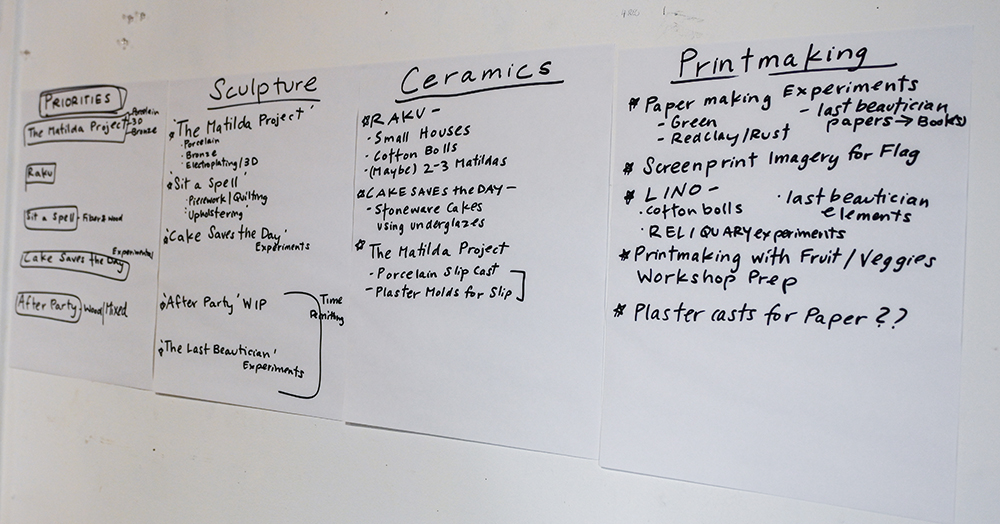 PRIORITIES
The Matilda Project
- Porcelain
- 3D
- Bronze
Raku
Sit a Spell - Fiber & Wood
Experimental
Cake Saves the Day
After Party - Wood/Mixed
Sculpture
* 'The Matilda Project'
- Porcelain
- Bronze
- Electroplating/3D
* 'Sit a Spell'
- Piecework/Quilting
- Upholstering
* 'Cake Saves the Day'
Experiments
* 'After Party' WIP
Time
Permitting
* 'The Last Beautician'
Experiments
Ceramics
* RAKU -
- Small Houses
- Cotton Bolls
- (Maybe) 2-3 Matildas
* CAKE SAVES the DAY -
- Stoneware Cakes
using underglazes
* The Matilda Project
- Porcelain Slip Cast
- Plaster Molds for Slip
Printmaking
* Paper making Experiments
- Green
- Red Clay/Rust
- last beautician
papers → Books
* Screenprint Imagery for Flag
* LINO -
• cotton bolls
• RELIQUARY experiments
• last beautician
elements
* Printmaking with Fruit/Veggies
Workshop Prep
* Plaster casts for Paper ??